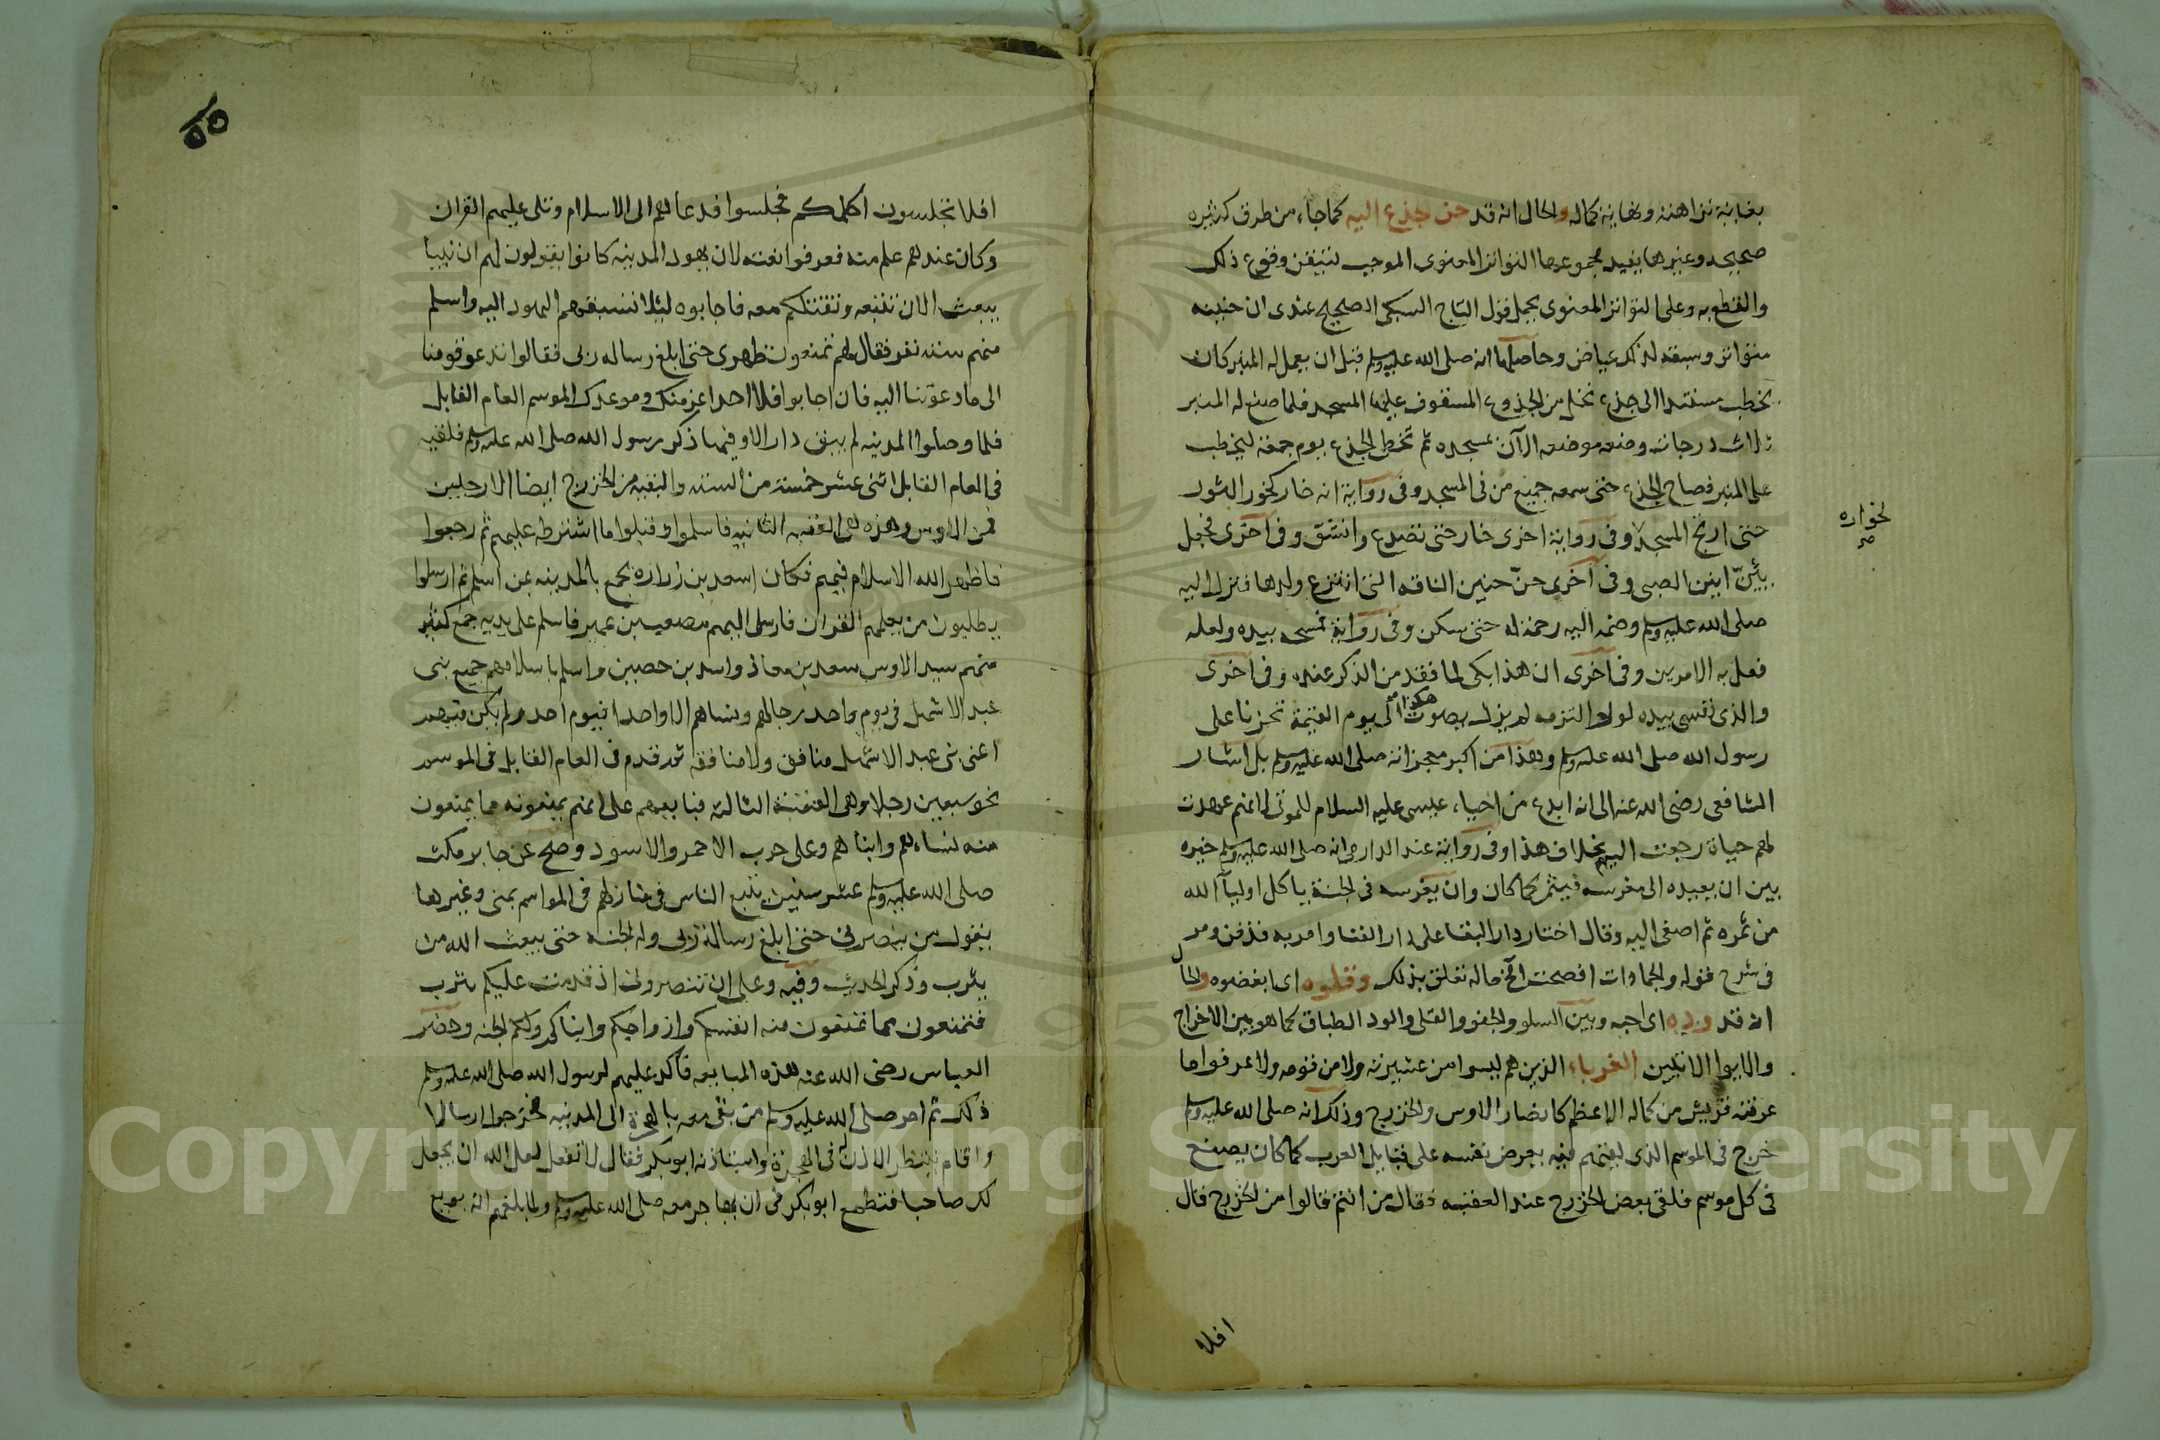 بغاية نزاهته ونهاية كماله والحال انه قد حن جذع اليه كما جاء من طرق كثيرة
صحيحة وغيرها يفيد مجموعها التواتر المعنوي الموجب لتيقن وقوع ذلك
والقطع به وعلى التواتر المعنوي يحمل قول التاج السبكي الصحيح عندي ان حنينه
متواتر وسبقه لذلك عياض وحاصلها انه صلى الله عليه وسلم قبل ان يعمل له المنبر كان
يخطب مستندا الى جذع نخل من الجذوع المسقوف عليها المسجد فلما صنع له المنبر
ثلاث درجات وضعه موضعه الآن بمسجده ثم تخطى الجذع يوم جمعة ليخطب
على المنبر فصاح الجذع حتى سمعه جميع من في المسجد وفي رواية انه خار كخور الثور
حتى ارتج المسجد وفي رواية اخرى خار حتى تصدع وانشق وفي اخرى فجعل
لخواره
صح
يئن انين الصبي وفي اخرى حن حنين الناقة التي انتزع ولدها فنزل اليه
صلى الله عليه وسلم وضمه اليه رحمة له حتى سكن وفي رواية فمسحه بيده ولعله
فعل به الامرين وفي اخرى ان هذا بكى لما فقد من الذكر عنده وفي اخرى
والذي نفسي بيده لو لم التزمه لم يزل يصوت هكذا الى يوم القيمة تحزنا على
رسول الله صلى الله عليه وسلم وهذا من اكبر معجزاته صلى الله عليه وسلم بل اشار
الشافعي رضى الله عنه الى انه ابدع من احياء عيسى عليه السلام للموتى لانهم عهدت
لهم حياة رجعت اليهم بخلاف هذا وفي رواية عند الدارمي انه صلى الله عليه وسلم خيره
بين ان يعيده الى مغرسه فيثمر كما كان وان يغرسه في الجنة ياكل اوليآ الله
من ثمره ثم اصغى اليه وقال اختار دار البقا على دار الفنا وامر به فدفن ومر
في شرح قوله والجمادات افصحت الخ ماله تعلق بذلك وقلوه اي ابغضوه والحال
انه قد وده اي احبه وبين السلو والجفو والقلى والود الطباق كما هو بين الاخراج
والايوا الاتيين الغرباء الذين هم ليسوا من عشيرته ولا من قومه ولا عرفوا ما
عرفته قريش من كماله الاعظم كانصار الاوس والخزرج وذلك انه صلى الله عليه وسلم
خرج في الموسم الذي لقيهم فيه يعرض نفسه على قبايل العرب كما كان يصنع
في كل موسم فلقى بعض الخزرج عند العقبه فقال من انتم قالوا من الخزرج قال
افلا
٥٥
افلا تجلسون اكلمكم فجلسوا فدعاهم الى الاسلام وتلى عليهم القران
وكان عندهم علم منه فعرفوا نعته لان يهود المدينه كانوا يقولون لهم ان نبيا
يبعث الان نتبعه ونقتلكم معه فاجابوه لئلا تسبقهم اليهود اليه واسلم
منهم سته نفر فقال لهم تمنعون ظهري حتى ابلغ رسالة ربي فقالوا ندعو قومنا
الى ما دعوتنا اليه فان اجابوا فلا احد اعز منك وموعدك الموسم العام القابل
فلما وصلوا المدينه لم يبق دار الا وفيها ذكر رسول الله صلى الله عليه وسلم فلقيه
في العام القابل اثنى عشر خمسة من الستة والبقيه من الخزرج ايضا الا رجلين
فمن الاوس وهذه هي العقبه الثانيه فاسلموا وقبلوا ما اشترطه عليهم ثم رجعوا
فاظهر الله الاسلام فيهم فكان اسعد بن زراره يجمع بالمدينه بمن اسلم ثم ارسلوا
يطلبون من يعلمهم القران فارسل اليهم مصعب بن عمير فاسلم على يديه جمع كثير
منهم سيد الاوس سعد بن معاذ واسد بن حصين واسلم باسلامهم جميع بني
عبد الاشهل في يوم واحد رجالهم ونساهم الا واحدا فيوم احد ولم يكن فيهم
اعني بني عبد الاشهل منافق ولا منافقه ثم قدم في العام القابل في الموسم
نحو سبعين رجلا وهي العقبة الثالثة فبايعهم على انهم يمنعونه مما يمنعون
منه نساءهم وابناهم وعلى حرب الاحمر والاسود وصح عن جابر مكث
صلى الله عليه وسلم عشر سنين يتبع الناس في منازلهم في المواسم بمنى وغيرها
يقول من ينصرني حتى ابلغ رسالة ربي وله الجنه حتى يبعث الله من
يثرب وذكر الحديث وفيه وعلى ان تنصروني اذ قدمت عليكم يثرب
فتمنعون مما تمنعون منه انفسكم وازواجكم وابناكم ولكم الجنه وحضر
العباس رضى الله عنه هذه المبايعه فاكد عليهم لرسول الله صلى الله عليه وسلم
ذلك ثم امر صلى الله عليه وسلم من بقى معه بالهجرة الى المدينه فخرجوا ارسالا
واقام ينتظر الاذن في الهجرة واستاذنه ابو بكر فقال لا تفعل لعل الله ان يجعل
لك صاحبا فتطمع ابو بكر في ان يهاجر معه صلى الله عليه وسلم ولما بلغهم انه بويع
Copyright © King Saud University